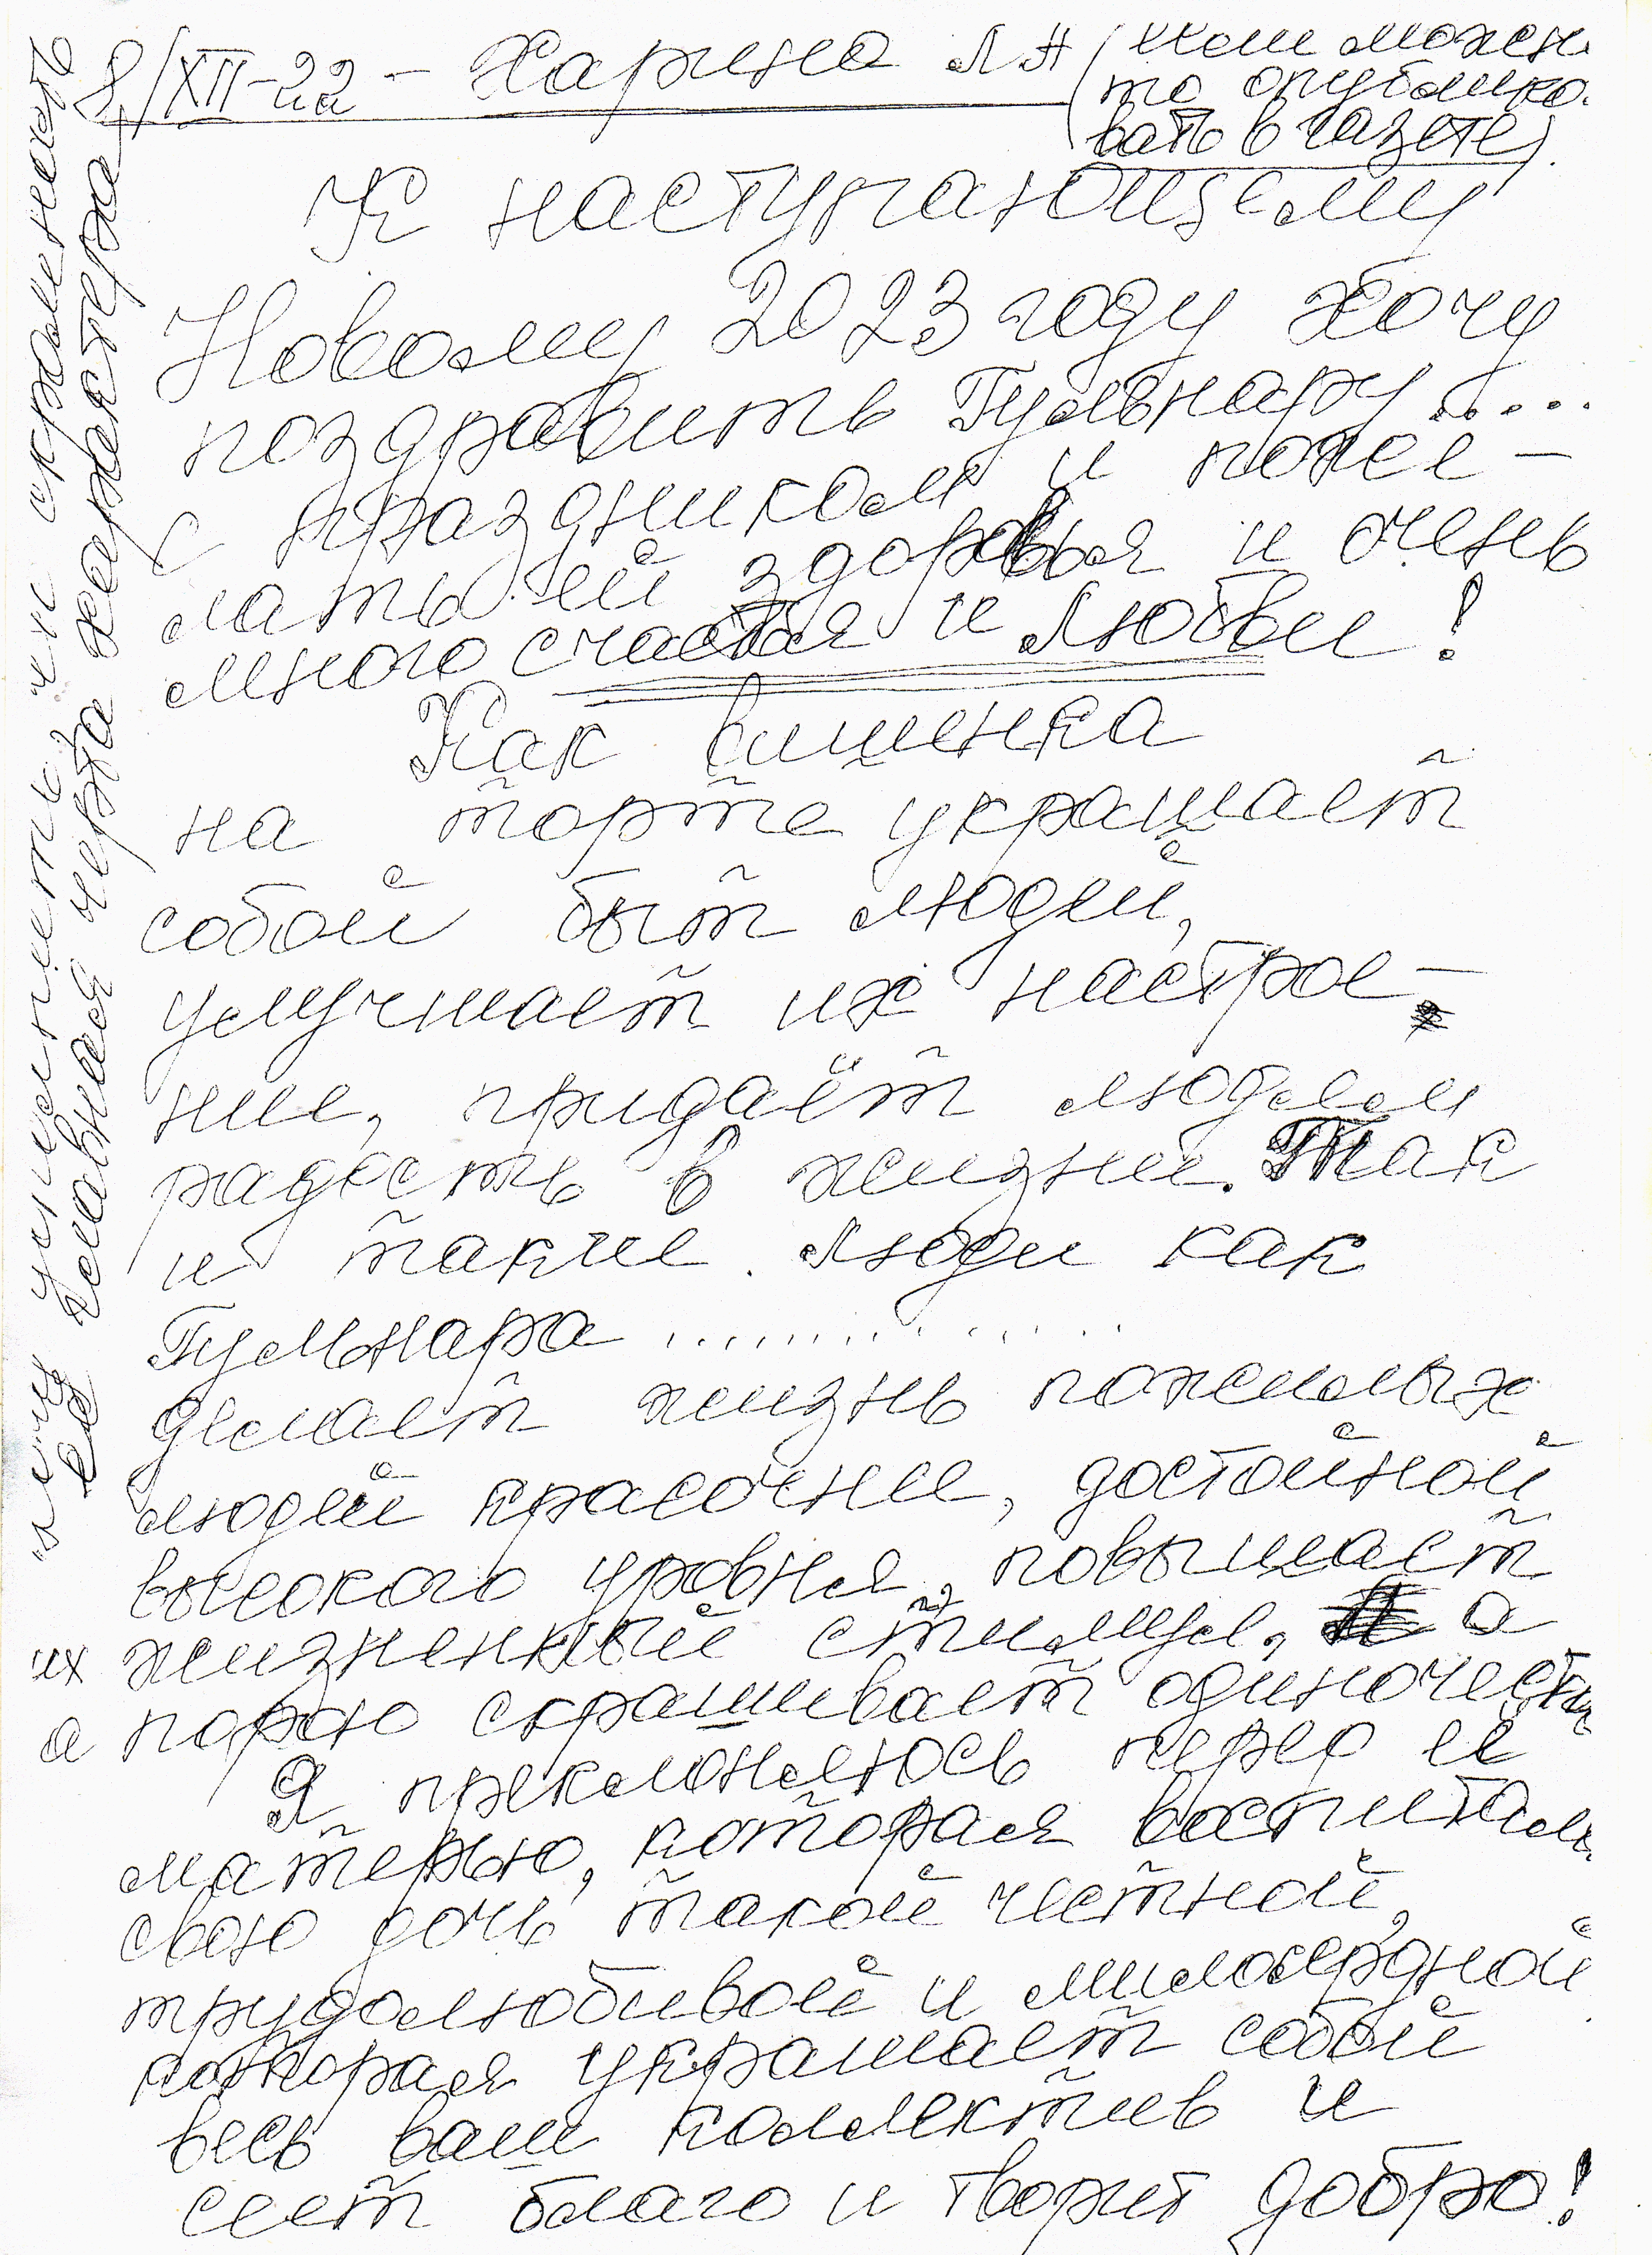 8/XII-22 - Харина Л Н (или можем
то опублико.
вать в газете).
К наступающему
Новому 2023 году хочу
поздравить Гульнару.....
с праздником и поже-
лать ей здоровья и очень
много счастья и любви!
Как вишенка
на торте украшает
собой быт людей,
улучшает их настрое-
ние, придаёт людям
радость в жизни. Так
и такие люди как
Гульнара ..............
делает жизнь пожилых
людей красочнее, достойной
высокого уровня, повышает
их жизненный стимул, а
а порою скрашивает одиночество
Я преклоняюсь перед её
матерью, которая воспитала
свою дочь такой честной,
трудолюбивой и милосердной
которая украшает собой
весь ваш коллектив и
сеет благо и творит добро!
её главная черта характера